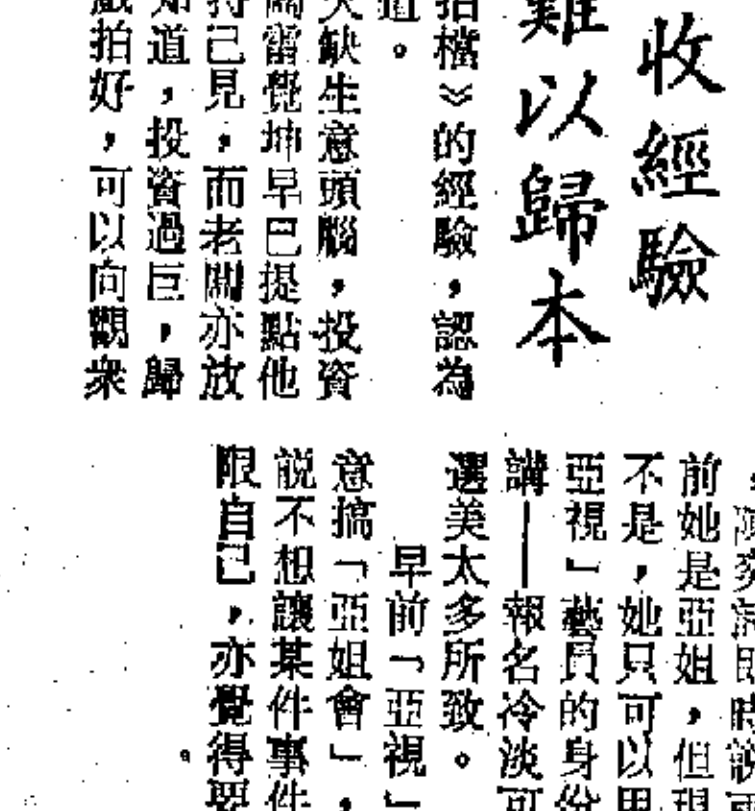 收經驗
難以歸本
拍檔》的經驗，認為
道。
缺生意頭腦，投資
雷覺坤早巳提點他
持己見，而老闆亦放
知道，投資過巨，歸
戲拍好，可以向觀眾
時說
前她是亞姐，但現
不是，她只可以用
亞視」藝員的身份
講——報名冷淡可
選美太多所致。
早前「亞視」
意搞「亞姐會」，
說不想讓某件事件
限自己，亦覺得要
。